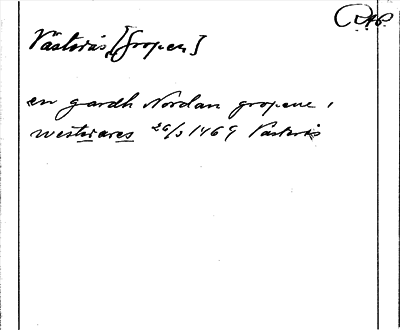 RAP
Västerås [Gropen]
en gardh Nordan gropene i
westwares 26/3 1469 Västerås